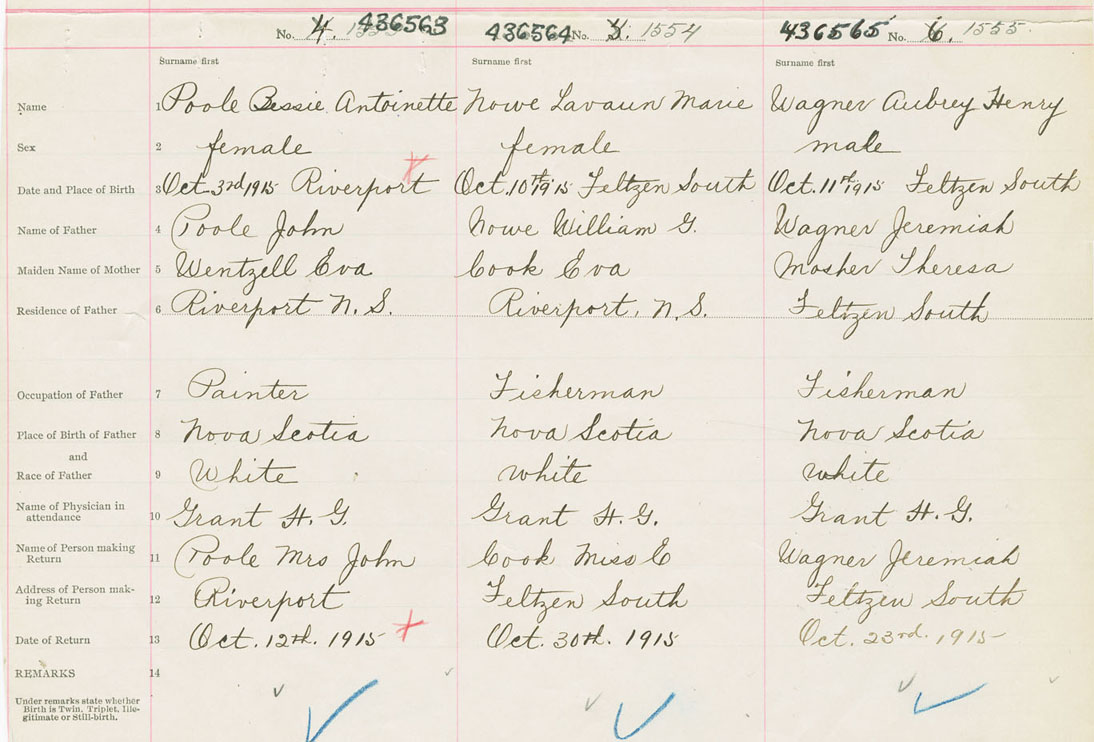 No. 4. 436563 436564 No. 5. 1554 436565 No. 6. 1555
Surname first Surname first Surname first
Name 1 Poole Bessie Antoinette Nowe Lavaun Marie Wagner Aubrey Henry
Sex 2 female female male
Date and Place of Birth 3 Oct. 3rd 1915 Riverport Oct. 10th 1915 Feltzen South Oct. 11th 1915 Feltzen South
Name of Father 4 Poole John Nowe William G. Wagner Jeremiah
Maiden Name of Mother 5 Wentzell Eva Cook Eva Mosher Theresa
Residence of Father 6 Riverport N.S. Riverport, N.S. Feltzen South
Occupation of Father 7 Painter Fisherman Fisherman
Place of Birth of Father 8 Nova Scotia Nova Scotia Nova Scotia
and
Race of Father 9 White white white
Name of Physician in
attendance 10 Grant H. G. Grant H. G. Grant H. G.
Name of Person making
Return 11 Poole Mrs John Cook Miss E Wagner Jeremiah
Address of Person mak-
ing Return 12 Riverport Feltzen South Feltzen South
Date of Return 13 Oct. 12th. 1915 Oct. 30th. 1915 Oct. 23rd. 1915
REMARKS 14
Under remarks state whether
Birth is Twin, Triplet, Ille-
gitimate or Still-birth.